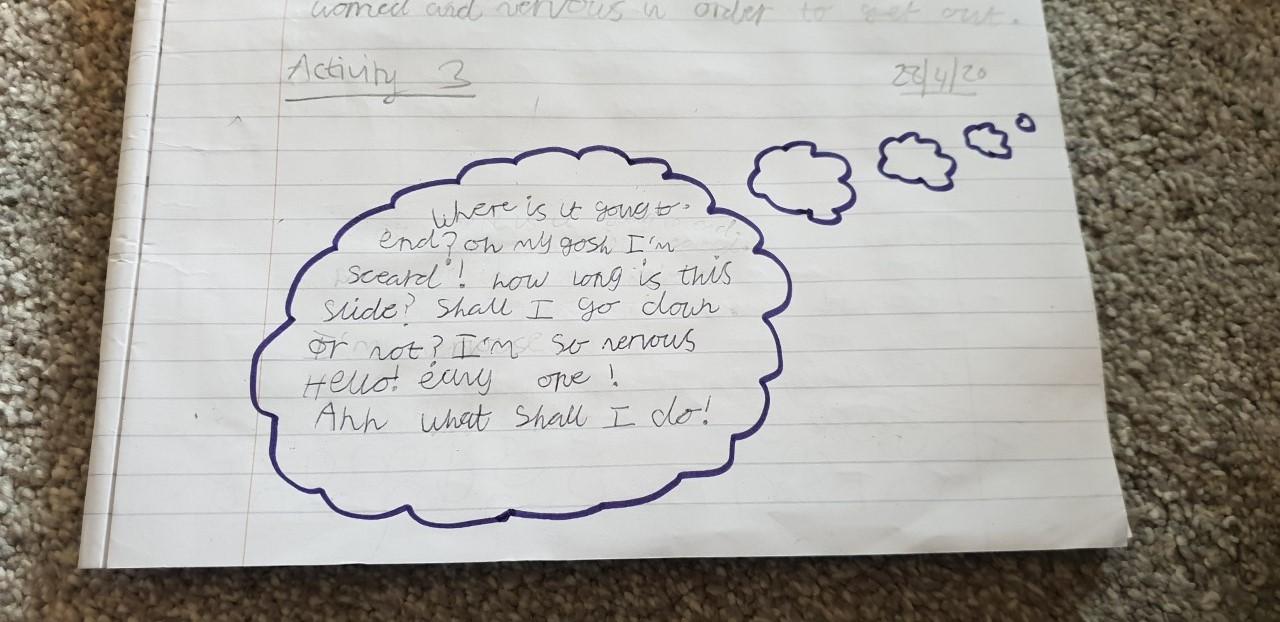 worried and nervous in order to get out.
Activity 3
22/4/20
Where is it going to
end? oh my gosh I'm
sceard! how long is this
slide? Shall I go down
or not? I'm so nervous
Hello! one!
Ahh what shall I do!